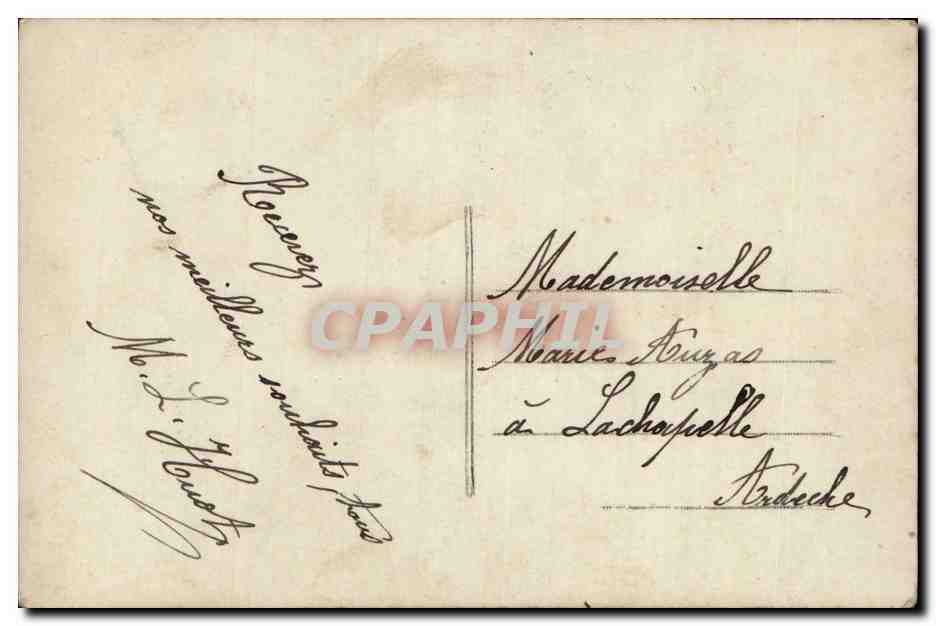 Recevez
nos meilleurs souhaits, tous
M. L. Huot
Mademoiselle
Marie Auzas
à Lachapelle
Ardèche
CPAPHIL